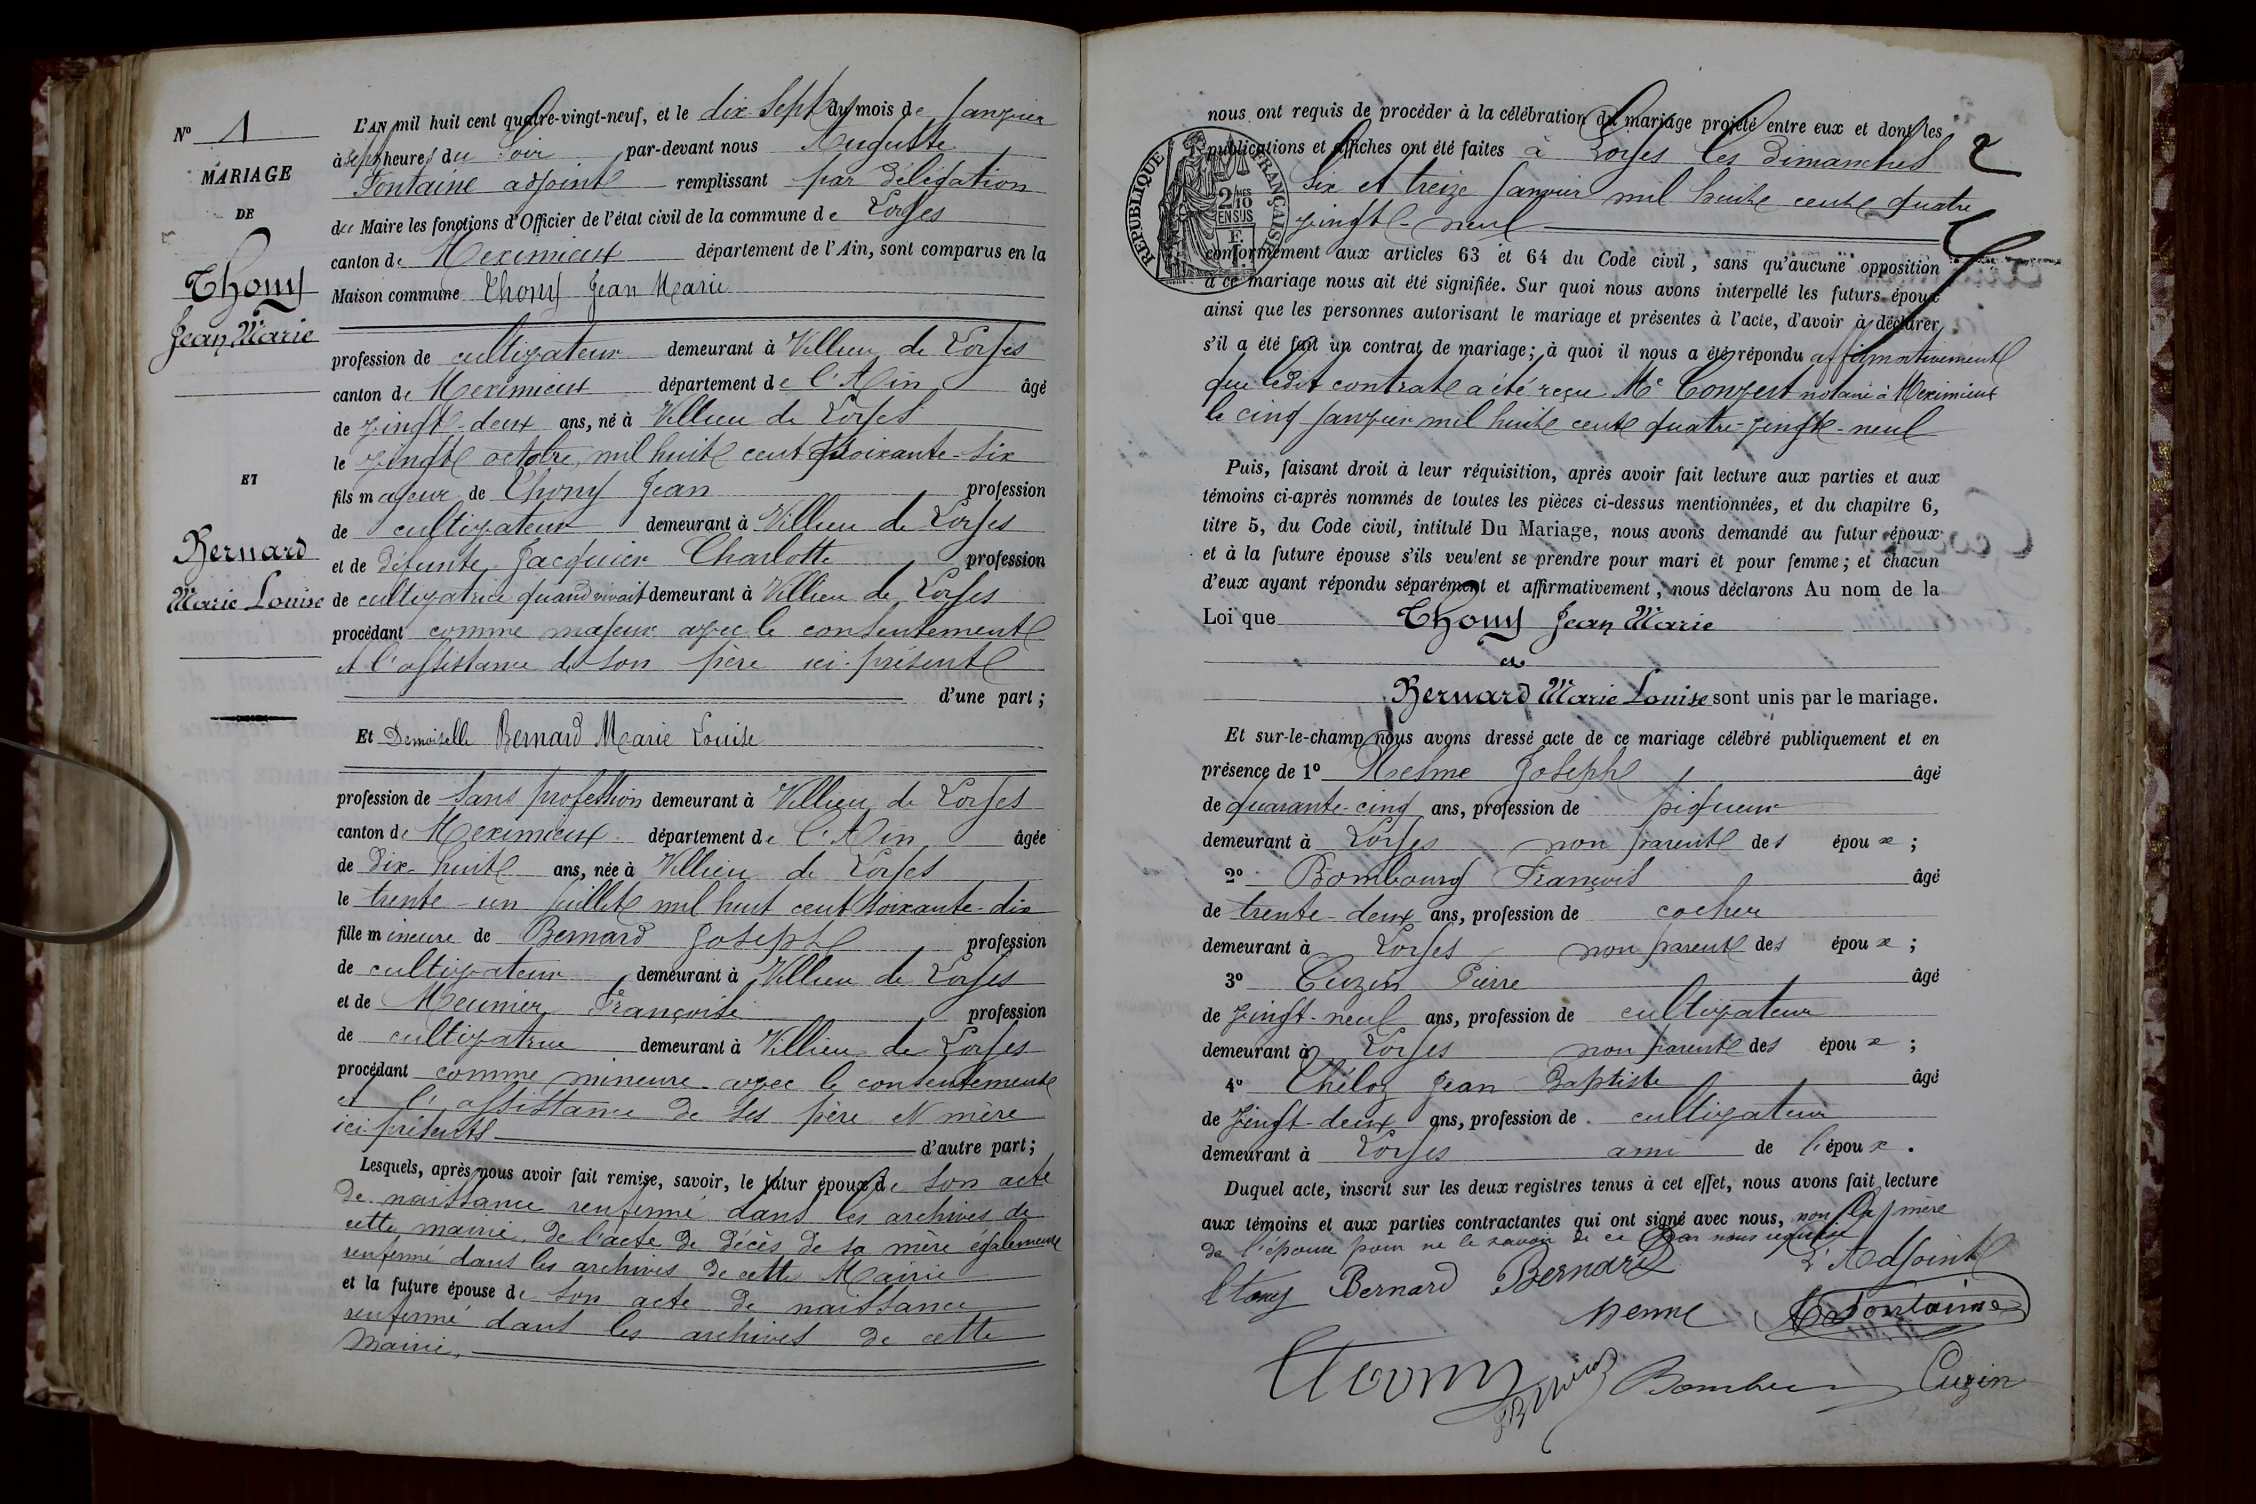 N° 1
MARIAGE
DE
Thony
Jean Marie
ET
Bernard
Marie Louise
L'AN mil huit cent quatre-vingt-neuf, et le dix Sept du mois de Janvier
à sept heures du Soir par-devant nous Auguste
Fontaine adjoint remplissant par délégation
du Maire les fonctions d'Officier de l'état civil de la commune de Loyes
canton de Meximieux département de l'Ain, sont comparus en la
Maison commune Thony Jean Marie
profession de cultivateur demeurant à Villieu de Loyes
canton de Meximieux département de l'Ain âgé
de vingt-deux ans, né à Villieu de Loyes
le vingt octobre mil huit cent soixante-six
fils majeur de Thony Jean profession
de cultivateur demeurant à Villieu de Loyes
et de défunte Jacquier Charlotte profession
de cultivatrice quand vivait demeurant à Villieu de Loyes
procédant comme majeur avec le consentement
et l'assistance de son père ici présent
d'une part ;
Et Demoiselle Bernard Marie Louise
profession de Sans profession demeurant à Villieu de Loyes
canton de Meximieux département de l'Ain âgée
de Dix-huit ans, née à Villieu de Loyes
le trente-un Juillet mil huit cent soixante-dix
fille mineure de Bernard Joseph profession
de cultivateur demeurant à Villieu de Loyes
et de Meunier Françoise profession
de cultivatrice demeurant à Villieu de Loyes
procédant comme mineure avec le consentement
et l'assistance de ses père et mère
ici présents d'autre part ;
Lesquels, après nous avoir fait remise, savoir, le futur époux de son acte
de naissance renfermé dans les archives de
cette mairie, de l'acte de décès de sa mère également
renfermé dans les archives de cette Mairie
et la future épouse de son acte de naissance
renfermé dans les archives de cette
Mairie.
2
RÉPUBLIQUE FRANÇAISE
2 MES
10
EN SUS
nous ont requis de procéder à la célébration du mariage projeté entre eux et dont les
publications et affiches ont été faites à Loyes les dimanches
six et treize Janvier mil huit cent quatre
vingt-neuf
conformément aux articles 63 et 64 du Code civil, sans qu'aucune opposition
à ce mariage nous ait été signifiée. Sur quoi nous avons interpellé les futurs époux
ainsi que les personnes autorisant le mariage et présentes à l'acte, d'avoir à déclarer
s'il a été fait un contrat de mariage ; à quoi il nous a été répondu affirmativement
que ledit contrat a été reçu Me Convert notaire à Meximieux
le cinq Janvier mil huit cent quatre-vingt-neuf
Puis, faisant droit à leur réquisition, après avoir fait lecture aux parties et aux
témoins ci-après nommés de toutes les pièces ci-dessus mentionnées, et du chapitre 6,
titre 5, du Code civil, intitulé Du Mariage, nous avons demandé au futur époux
et à la future épouse s'ils veulent se prendre pour mari et pour femme ; et chacun
d'eux ayant répondu séparément et affirmativement, nous déclarons Au nom de la
Loi que Thony Jean Marie
et
Bernard Marie Louise sont unis par le mariage.
Et sur-le-champ nous avons dressé acte de ce mariage célébré publiquement et en
présence de 1° Mesme Joseph âgé
de quarante-cinq ans, profession de piqueur
demeurant à Loyes non parent des époux ;
2° Bombourg François âgé
de trente-deux ans, profession de cocher
demeurant à Loyes non parent des époux ;
3° Cuzin Pierre âgé
de vingt-neuf ans, profession de cultivateur
demeurant à Loyes non parent des époux ;
4° Théloz Jean Baptiste âgé
de vingt-deux ans, profession de cultivateur
demeurant à Loyes ami de l'époux.
Duquel acte, inscrit sur les deux registres tenus à cet effet, nous avons fait lecture
aux témoins et aux parties contractantes qui ont signé avec nous, non la mère
de l'épouse pour ne le savoir de ce par nous requise
Bernard Bernard L'Adjoint
Fontaine
Cuzin